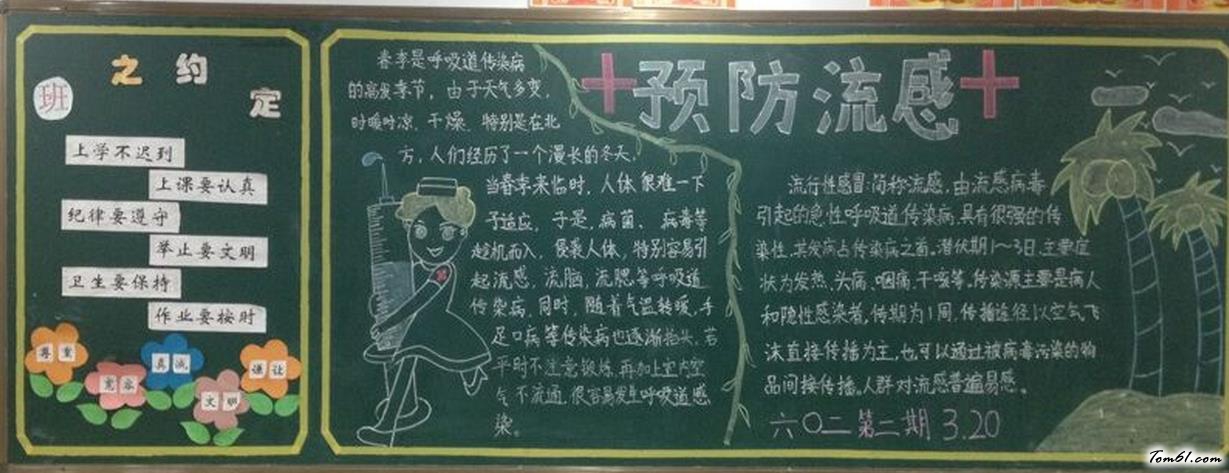 班之约定
上学不迟到
上课要认真
纪律要遵守
举止要文明
卫生要保持
作业要按时
尊重
宽容
真诚
文明
谦让
预防流感
春季是呼吸道传染病
的高发季节，由于天气多变，
时暖时凉，干燥，特别是在北
方，人们经历了一个漫长的冬天，
当春季来临时，人体很难一下
予适应，于是，病菌、病毒等
趁机而入，侵袭人体，特别容易引
起流感，流脑，流腮等呼吸道
传染病，同时，随着气温转暖，手
足口病等传染病也逐渐抬头。若
平时不注意锻炼，再加上室内空
气不流通，很容易发生呼吸道感
染。
流行性感冒：简称流感，由流感病毒
引起的急性呼吸道传染病，具有很强的传
染性，其发病占传染病之首。潜伏期1～3日，主要症
状为发热、头痛、咽痛、干咳等，传染源主要是病人
和隐性感染者，传期为1周，传播途径以空气飞
沫直接传播为主，也可以通过被病毒污染的物
品间接传播。人群对流感普遍易感。
六〇二 第二期 3.20
Tom61.com